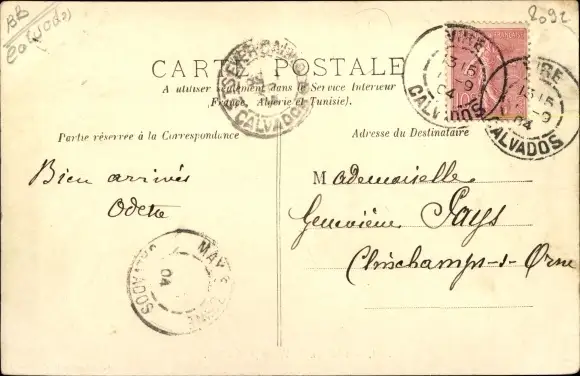 BB
2092
CARTE POSTALE
A utiliser seulement dans le Service Intérieur
(France, Algérie et Tunisie).
Partie réservée à la Correspondance
Adresse du Destinataire
VIRE
13 15
9
04
CALVADOS
VIRE
13 15
9
04
CALVADOS
CALVADOS
Bien arrivés
Odette
Mademoiselle
Geneviève Pays
Clinchamps-s-Orne
MAY
ORNE
04
CALVADOS